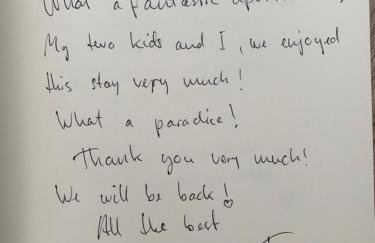 What a fantastic
My two kids and I, we enjoyed
this stay very much!
What a paradice!
Thank you very much!
We will be back! ♡
All the best